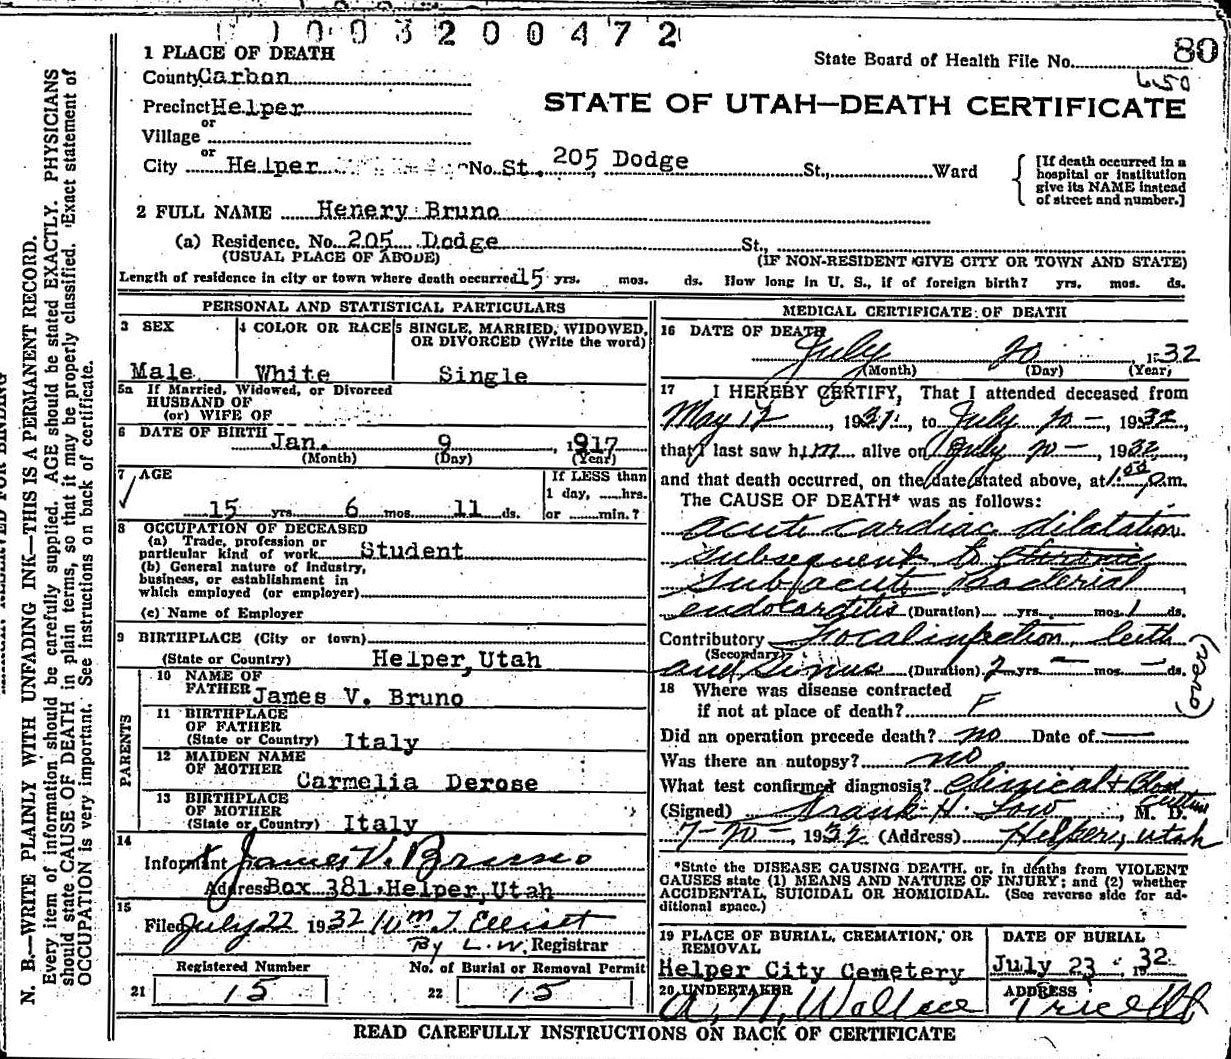 1003200472
80
State Board of Health File No.
650
1 PLACE OF DEATH
County Carbon
Precinct Helper
or
Village
or
City Helper No. St. 205 Dodge St., Ward
STATE OF UTAH—DEATH CERTIFICATE
[If death occurred in a
hospital or institution
give its NAME instead
of street and number.]
2 FULL NAME Henery Bruno
(a) Residence. No. 205 Dodge St.,
(USUAL PLACE OF ABODE) (IF NON-RESIDENT GIVE CITY OR TOWN AND STATE)
Length of residence in city or town where death occurred 15 yrs. mos. ds. How long in U. S., if of foreign birth? yrs. mos. ds.
PERSONAL AND STATISTICAL PARTICULARS
3 SEX 4 COLOR OR RACE 5 SINGLE, MARRIED, WIDOWED,
OR DIVORCED (Write the word)
Male White Single
5a If Married, Widowed, or Divorced
HUSBAND OF
(or) WIFE OF
6 DATE OF BIRTH Jan. 9, 1917
(Month) (Day) (Year)
7 AGE If LESS than
1 day, hrs.
15 yrs. 6 mos. 11 ds. or min.?
8 OCCUPATION OF DECEASED
(a) Trade, profession or
particular kind of work Student
(b) General nature of industry,
business, or establishment in
which employed (or employer)
(c) Name of Employer
9 BIRTHPLACE (City or town)
(State or Country) Helper, Utah
PARENTS
10 NAME OF
FATHER James V. Bruno
11 BIRTHPLACE
OF FATHER
(State or Country) Italy
12 MAIDEN NAME
OF MOTHER Carmelia Derose
13 BIRTHPLACE
OF MOTHER
(State or Country) Italy
14
Informant James V. Bruno
Address Box 381 Helper, Utah
15
Filed July 22 1932 Wm J. Elliott
By L. W. Registrar
Registered Number No. of Burial or Removal Permit
21 15 22 15
MEDICAL CERTIFICATE OF DEATH
16 DATE OF DEATH
July 20, 1932
(Month) (Day) (Year)
17 I HEREBY CERTIFY, That I attended deceased from
May 12, 1931, to July 20-, 1932,
that I last saw him alive on July 20-, 1932,
and that death occurred, on the date stated above, at 1:00 p.m.
The CAUSE OF DEATH* was as follows:
acute cardiac dilatation
subsequent to chronic
subacute bacterial
endocarditis (Duration) yrs. mos. 1 ds.
Contributory Focal infection, teeth
(Secondary)
and sinus (Duration) 2 yrs. — mos. — ds.
(over)
18 Where was disease contracted
if not at place of death? F
Did an operation precede death? no Date of —
Was there an autopsy? no
What test confirmed diagnosis? Clinical + Blood
culture
(Signed) Frank H. Low, M. D.
7-20-, 1932 (Address) Helper, Utah
*State the DISEASE CAUSING DEATH, or, in deaths from VIOLENT
CAUSES state (1) MEANS AND NATURE OF INJURY; and (2) whether
ACCIDENTAL, SUICIDAL OR HOMICIDAL. (See reverse side for ad-
ditional space.)
19 PLACE OF BURIAL, CREMATION, OR
REMOVAL
Helper City Cemetery
DATE OF BURIAL
July 23, 1932
20 UNDERTAKER ADDRESS
A. N. Wallace Price Ut
READ CAREFULLY INSTRUCTIONS ON BACK OF CERTIFICATE
N. B.—WRITE PLAINLY WITH UNFADING INK—THIS IS A PERMANENT RECORD.
Every item of information should be carefully supplied. AGE should be stated EXACTLY. PHYSICIANS
should state CAUSE OF DEATH in plain terms, so that it may be properly classified. Exact statement of
OCCUPATION is very important. See instructions on back of certificate.